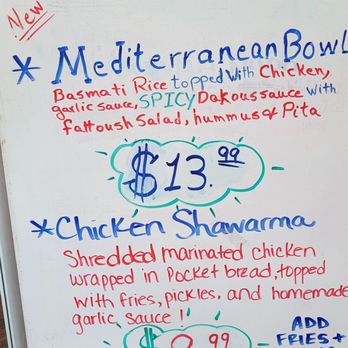 New
* Mediterranean Bowl
Basmati Rice topped with Chicken,
garlic sauce, SPICY Dakous sauce with
fattoush salad, hummus & Pita
$13.99
* Chicken Shawarma
Shredded marinated chicken
wrapped in Pocket bread, topped
with fries, pickles, and homemade
garlic sauce!
ADD
$ .99
FRIES +